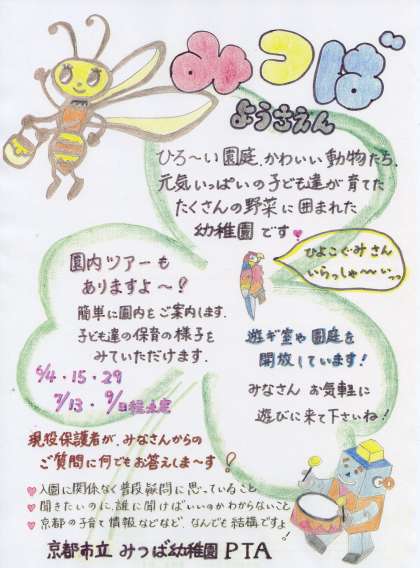 みつば
ようちえん
ひろ〜い園庭、かわいい動物たち、
元気いっぱいの子ども達が育てた
たくさんの野菜に囲まれた
幼稚園です
園内ツアーも
ありますよ〜!
簡単に園内をご案内します.
子ども達の保育の様子を
みていただけます.
6/4・15・29
7/13・9/
ひよこぐみさん
いらっしゃ〜〜いっっ
遊ギ室や園庭を
開放しています!
みなさん お気軽に
遊びに来て下さいね!
現役保護者が、みなさんからの
ご質問に何でもお答えしま〜す?
入園に関係なく普段疑問に思っていること
聞きたいのに、誰に聞けばいいのかわからないこと
京都の子育て情報などなど、なんでも結構ですよ!
京都市立 みつば幼稚園 PTA